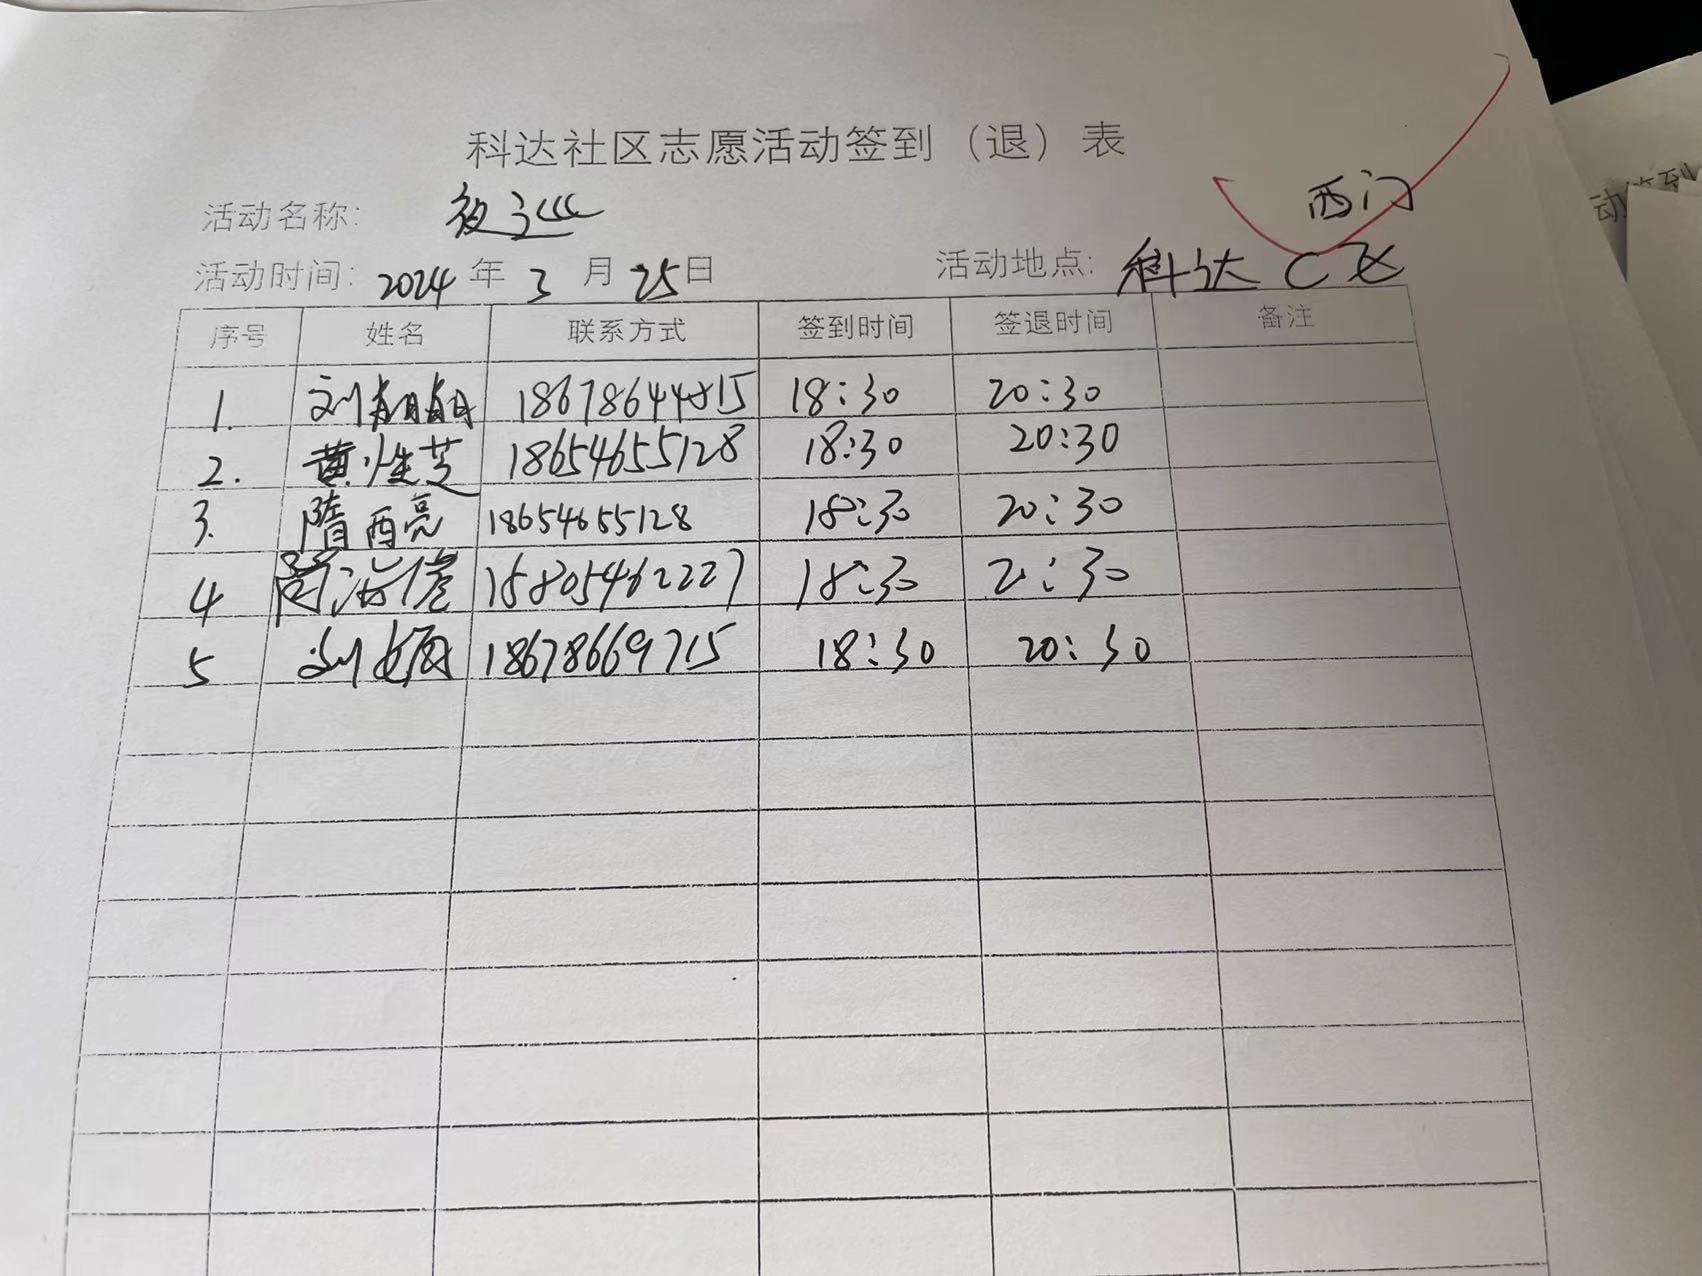 科达社区志愿活动签到（退）表
活动名称: 夜巡 西门
活动时间: 2024 年 3 月 25 日 活动地点: 科达 C区
序号 姓名 联系方式 签到时间 签退时间 备注
1. 刘 18678644815 18:30 20:30
2. 黄 芝 18654655128 18:30 20:30
3. 隋西亮 18654655128 18:30 20:30
4 15805462227 18:30 20:30
5 刘 18678669715 18:30 20:30